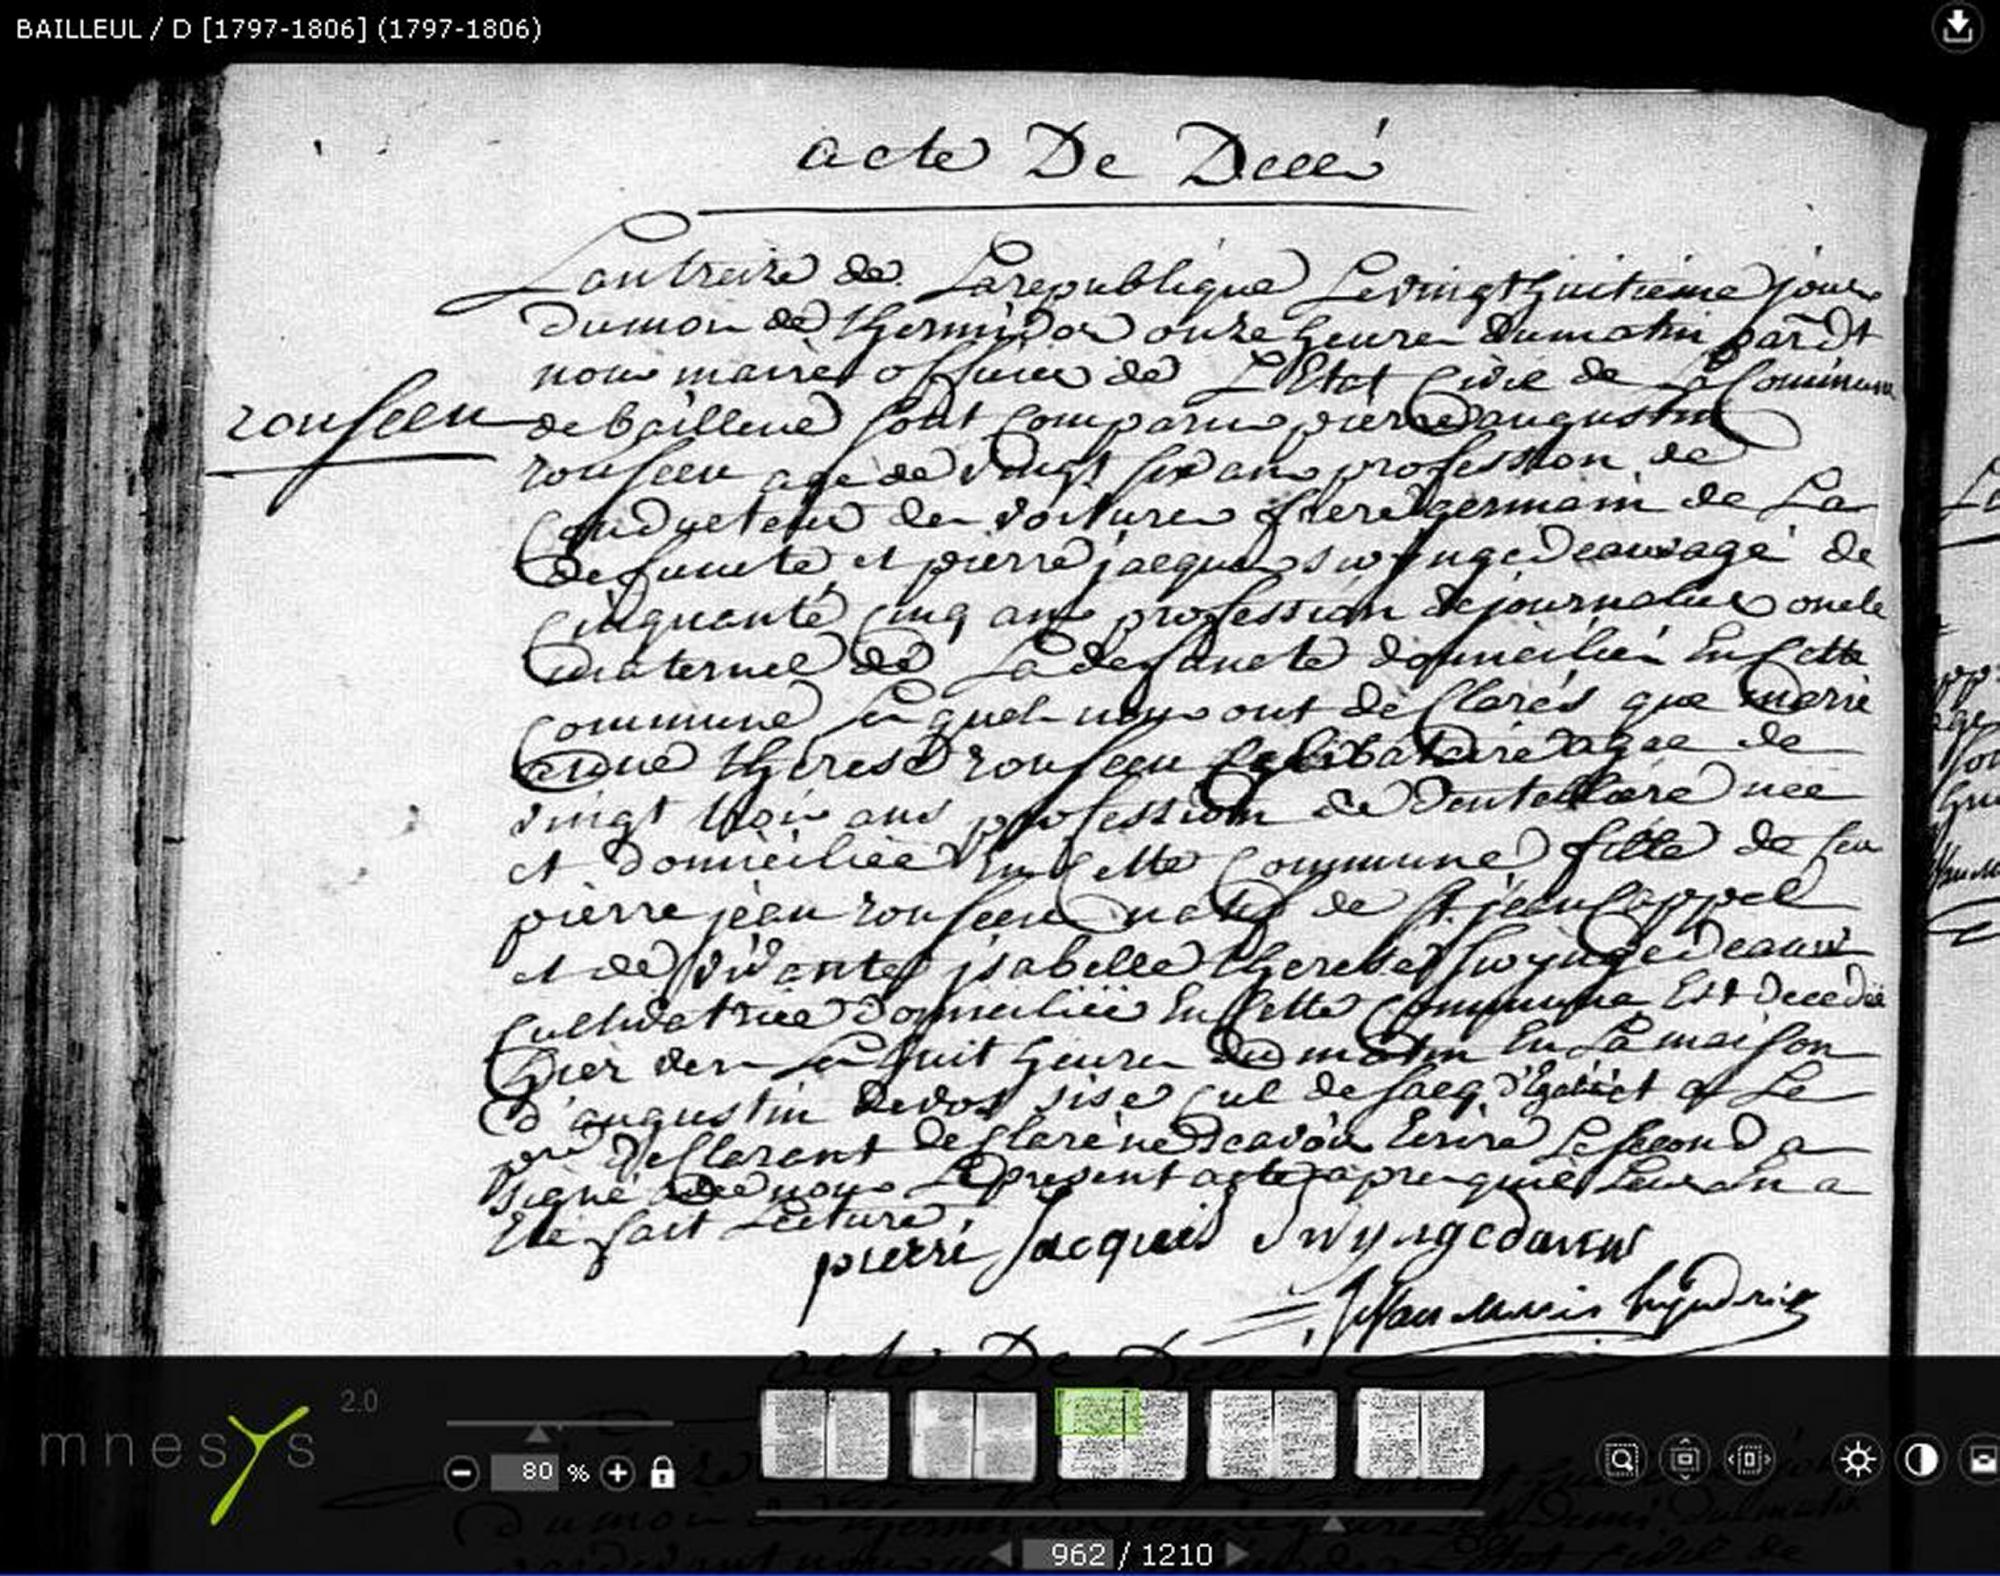 BAILLEUL / D [1797-1806] (1797-1806)
acte De Decé
L'an treize de La republique Le vingt huitieme jour
du mois de thermidor onze heures du matin par dt
nous maire officier de L'Etat Civil de La Commune
rousseeu
de bailleul sont comparus pierre augustin
rousseeu age de vingt six ans profession de
Conducteur des voitures frere germain de La
defuncte et pierre jacques swyngedeauw agé de
Cinquante cinq ans profession de journalier oncle
maternel de La defuncte domiciliés En Cette
Commune Lesquels nous ont declarés que marie
anne therese rousseeu Celibataire agee de
vingt trois ans profession de dentelliere née
et domiciliée En Cette Commune fille de feu
pierre jean rousseeu natif de St jean Cappel
et de vivante isabelle therese Swyngedeauw
Cultivatrice domiciliée En Cette Commune Est decedée
hier vers Les huit heures du matin En La maison
d'augustin devos sise Cul de Sacq et Le
declarant declaré ne scavoir Ecrire Le second a
signé avec nous Le present acte apres quil Leur En a
Eté fait Lecture,
pierre Jacques Swyngedauw
acte De Decés
mnesys 2.0
80 %
962 / 1210